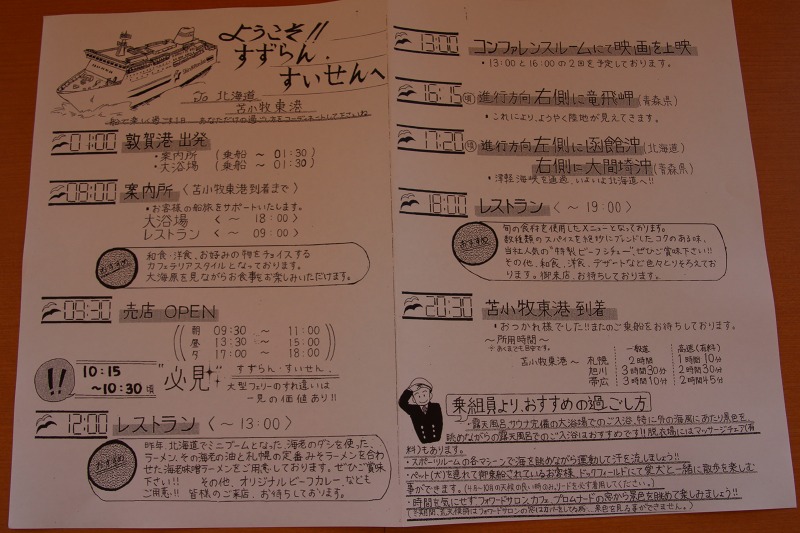 ようこそ!!
すずらん・
すいせんへ
To 北海道
苫小牧東港
01:00 敦賀港 出発
・案内所 (乗船 〜 01:30)
・大浴場 (乗船 〜 01:30)
08:00 案内所 〈苫小牧東港到着まで〉
・お客様の船旅をサポートいたします。
大浴場 〈〜 18:00〉
レストラン 〈〜 09:00〉
おすすめ
和食・洋食、お好みの物をチョイスする
カフェテリアスタイルとなっております。
大海原を見ながらお食事をお楽しみいただけます。
09:30 売店 OPEN
朝 09:30 〜 11:00
昼 13:30 〜 15:00
夕 17:00 〜 18:00
!! 10:15 〜10:30頃 "必見"
すずらん・すいせん、
大型フェリーのすれ違いは
一見の価値あり!!
12:00 レストラン 〈〜13:00〉
おすすめ
昨年、北海道でミニブームとなった、海老のダシを使った、
ラーメン、その海老の油と札幌の定番みそラーメンを合わ
せた海老味噌ラーメンをご用意しております。ぜひご賞味
下さい!! その他、オリジナルビーフカレー、なども
ご用意!! 皆様のご来店、お待ちしております。
13:00 コンファレンスルームにて映画を上映
・13:00と16:00の2回を予定しております。
16:15頃 進行方向 右側に竜飛岬(青森県)
・これにより、ようやく陸地が見えてきます。
17:20頃 進行方向 左側に函館沖(北海道)
右側に大間埼沖(青森県)
・津軽海峡を通過、いよいよ北海道へ!!
18:00 レストラン 〈〜19:00〉
おすすめ
旬の食材を使用したメニューとなっております。
数種類のスパイスを絶妙にブレンドしたコクのある味、
当社人気の"特製ビーフシチュー"、ぜひご賞味下さい!!
その他、和食、洋食、デザートなど色々とりそろえてお
ります。御来店、お待ちしております。
20:30 苫小牧東港 到着
・おつかれ様でした!!またのご乗船をお待ちしております。
〜所用時間〜
※あくまでも目安です。
一般道 高速(有料)
苫小牧東港〜 札幌 2時間 1時間10分
旭川 3時間30分 2時間30分
帯広 3時間10分 2時間45分
乗組員より、おすすめの過ごし方
・露天風呂、サウナ完備の大浴場でのご入浴、特に外の海風にあたり景色を、
眺めながらの露天風呂でのご入浴はおすすめです!!脱衣場にはマッサージチェア(有
料)もあります。
・スポーツルームの各マシーンで海を眺めながら運動して汗を流しましょう!!
・ペット(犬)を連れて御乗船されているお客様、ドッグフィールドにて愛犬と一緒に散歩を楽しむ
事ができます。(4月〜10月の天候の良い時のみ、リードを必ず着用してください。)
・時間を気にせずフォワードサロン、カフェ、プロムナードの窓から景色を眺めて楽しみましょう!!